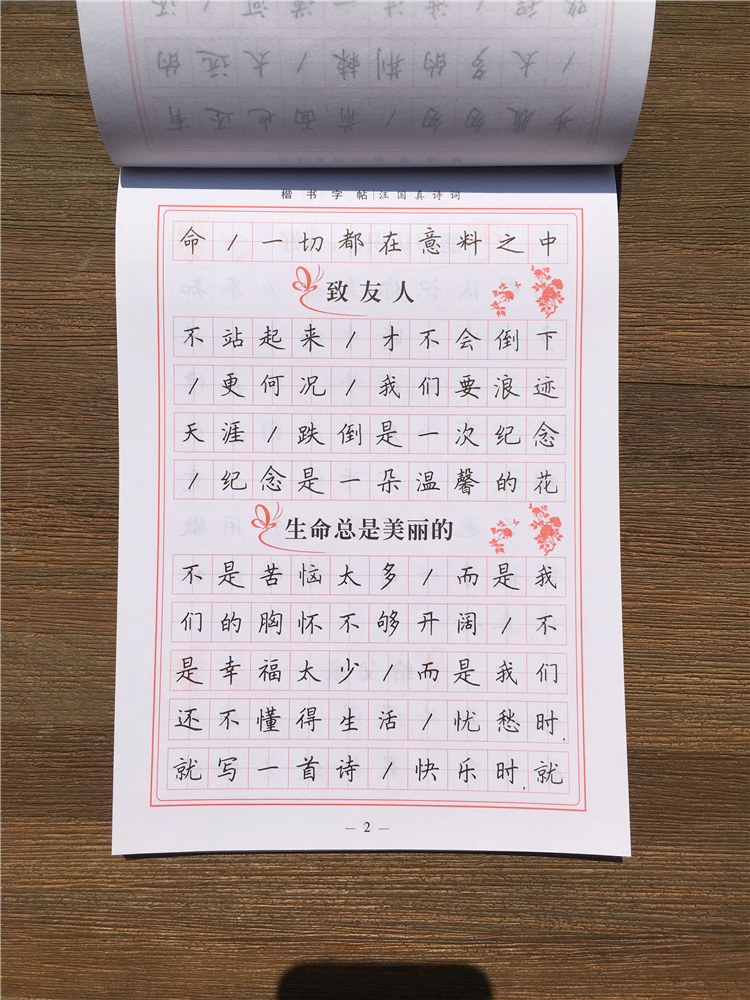 楷书字帖|汪国真诗词
命/一切都在意料之中
致友人
不站起来/才不会倒下
/更何况/我们要浪迹
天涯/跌倒是一次纪念
/纪念是一朵温馨的花
生命总是美丽的
不是苦恼太多/而是我
们的胸怀不够开阔/不
是幸福太少/而是我们
还不懂得生活/忧愁时,
就写一首诗/快乐时,就
— 2 —